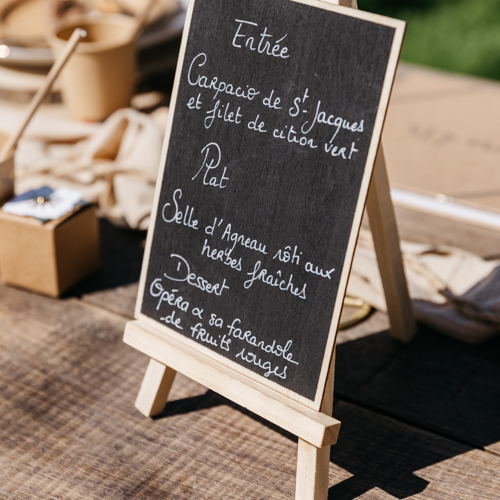 Entrée
Carpacio de St-Jacques
et filet de citron vert
Plat
Selle d'Agneau rôti aux
herbes fraîches
Dessert
Opéra & sa farandole
de fruits rouges